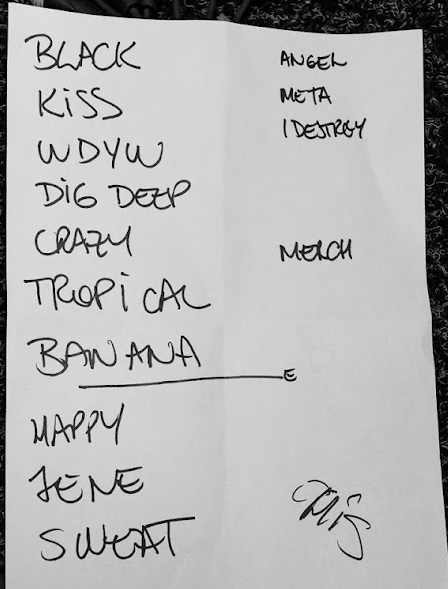 BLACK
KiSS
WDYW
DiG DEEP
CRAZY
TROPiCAL
BANANA
E
HAPPY
JENE
SWEAT
ANGEL
META
I DESTROY
MERCH